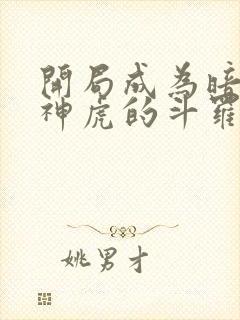 開局成為暗
神虎的斗羅
姚男才